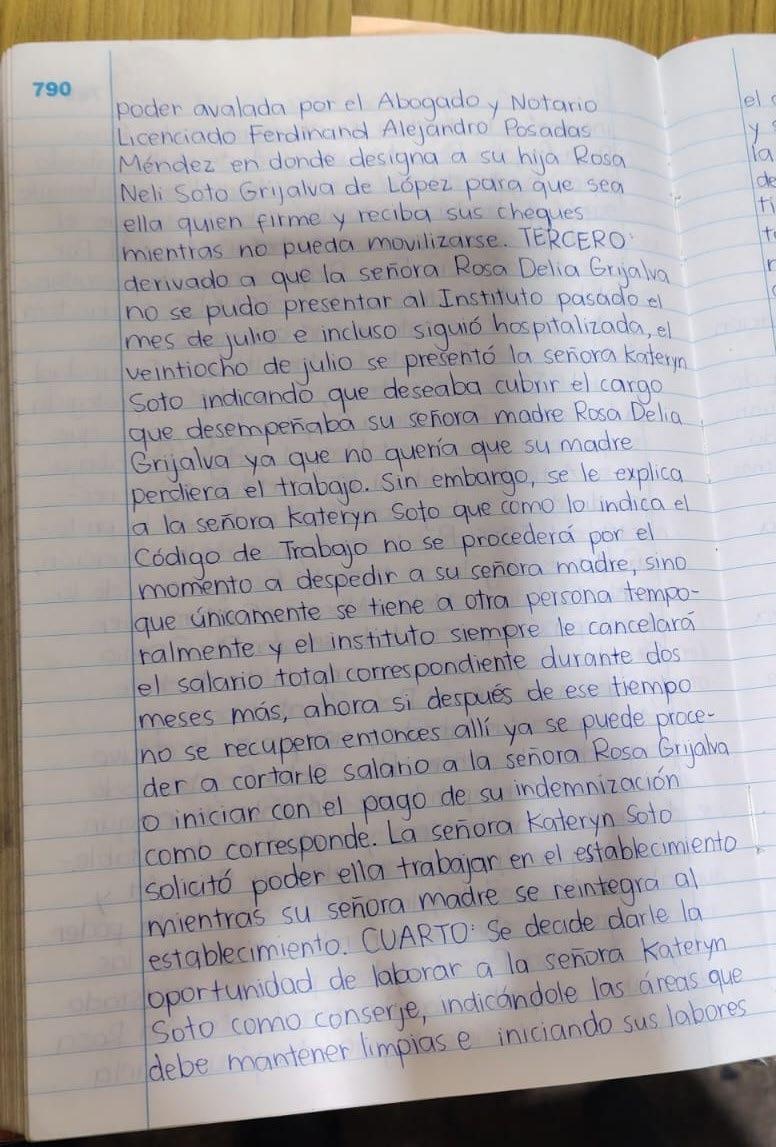 790
poder avalada por el Abogado y Notario
Licenciado Ferdinand Alejandro Posadas
Méndez en donde designa a su hija Rosa
Neli Soto Grijalva de López para que sea
ella quien firme y reciba sus cheques
mientras no pueda movilizarse. TERCERO:
derivado a que la señora Rosa Delia Grijalva
no se pudo presentar al Instituto pasado el
mes de julio e incluso siguió hospitalizada, el
veintiocho de julio se presentó la señora Kateryn
Soto indicando que deseaba cubrir el cargo
que desempeñaba su señora madre Rosa Delia
Grijalva ya que no quería que su madre
perdiera el trabajo. Sin embargo, se le explica
a la señora Kateryn Soto que como lo indica el
Código de Trabajo no se procederá por el
momento a despedir a su señora madre, sino
que únicamente se tiene a otra persona tempo-
ralmente y el instituto siempre le cancelará
el salario total correspondiente durante dos
meses más, ahora si después de ese tiempo
no se recupera entonces allí ya se puede proce-
der a cortarle salario a la señora Rosa Grijalva
o iniciar con el pago de su indemnización
como corresponde. La señora Kateryn Soto
solicitó poder ella trabajar en el establecimiento
mientras su señora madre se reintegra al
establecimiento. CUARTO: Se decide darle la
oportunidad de laborar a la señora Kateryn
Soto como conserje, indicándole las áreas que
debe mantener limpias e iniciando sus labores
el
y
la
de